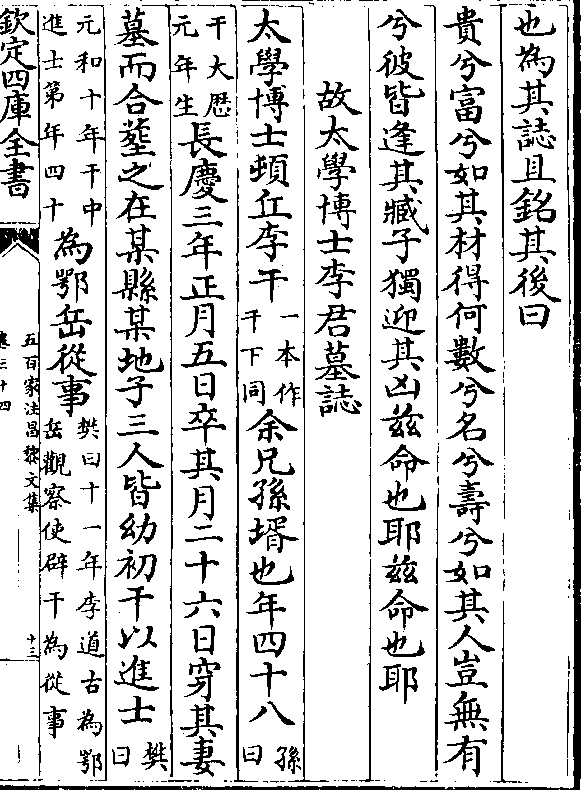 也為其誌且銘其後曰
貴兮富兮如其材得何數兮名兮壽兮如其人豈無有
兮彼皆逢其臧子獨迎其凶兹命也耶兹命也耶
故太學博士李君墓誌
太學博士頓丘李干一本作千下同余兄孫壻也年四十八孫曰
干大歴元年生長慶三年正月五日卒其月二十六日穿其妻
墓而合塟之在某縣某地子三人皆幼初干以進士樊曰
元和十年干中進士第年四十為鄂岳從事樊曰十一年李道古為鄂岳觀察使辟干為從事
欽定四庫全書
五百家注昌黎文集
卷三十四
十三